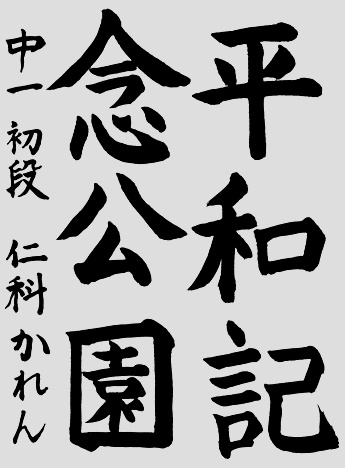 平和記
念公園
中一 初段 仁科かれん